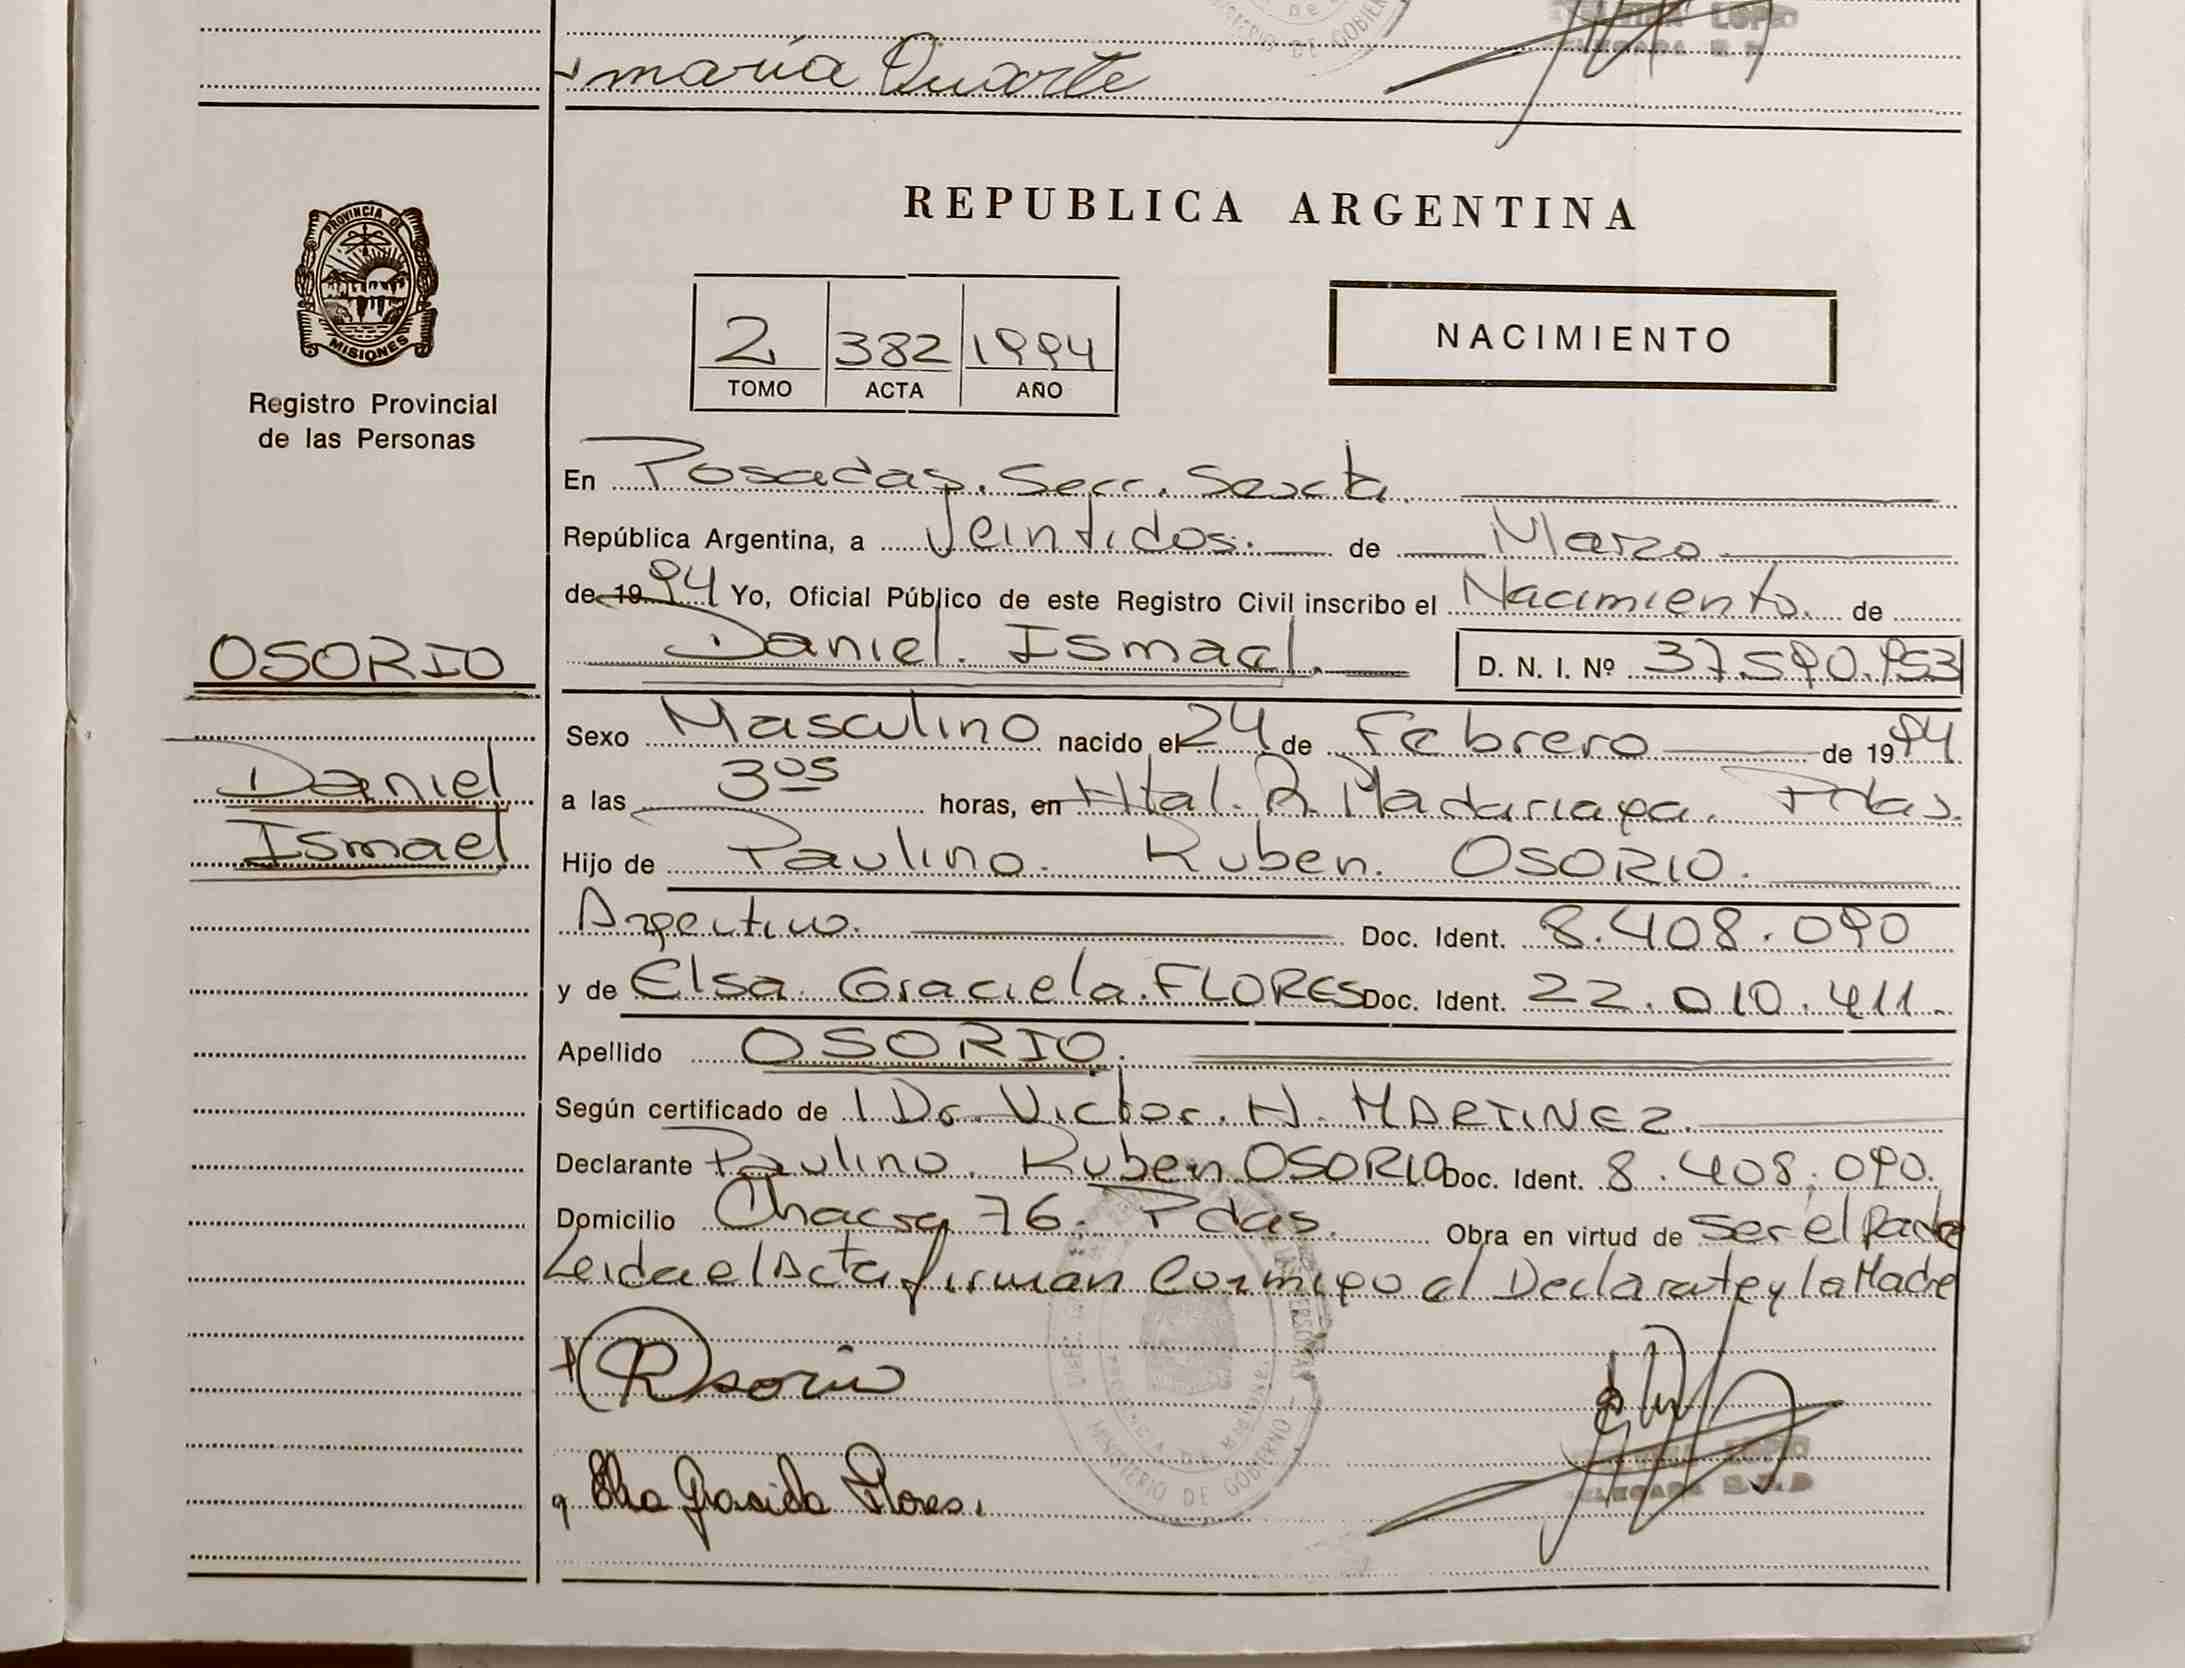 maría Duarte
REPUBLICA ARGENTINA
PROVINCIA DE
MISIONES
Registro Provincial
de las Personas
2 382 1994
TOMO ACTA AÑO
NACIMIENTO
En Posadas. Secc. Sexta.
República Argentina, a Veintidos. de Marzo
de 1994 Yo, Oficial Público de este Registro Civil inscribo el Nacimiento. de
Daniel. Ismael. D. N. I. Nº 37.590.953
OSORIO
Daniel
Ismael
Sexo Masculino nacido el 24 de Febrero de 1994
a las 3os horas, en Htal. R. Madariaga. Pdas.
Hijo de Paulino. Ruben. OSORIO.
Argentino. Doc. Ident. 8.408.090
y de Elsa. Graciela. FLORES Doc. Ident. 22.010.411.
Apellido OSORIO.
Según certificado de l Dr. Victor. H. MARTINEZ.
Declarante Paulino. Ruben OSORIO Doc. Ident. 8.408.090.
Domicilio Chacra 76. Pdas. Obra en virtud de ser el Padre
Leida el Acta firman Conmigo el Declarante y la Madre
Osorio
Elsa Graciela Flores.
MINISTERIO DE GOBIERNO